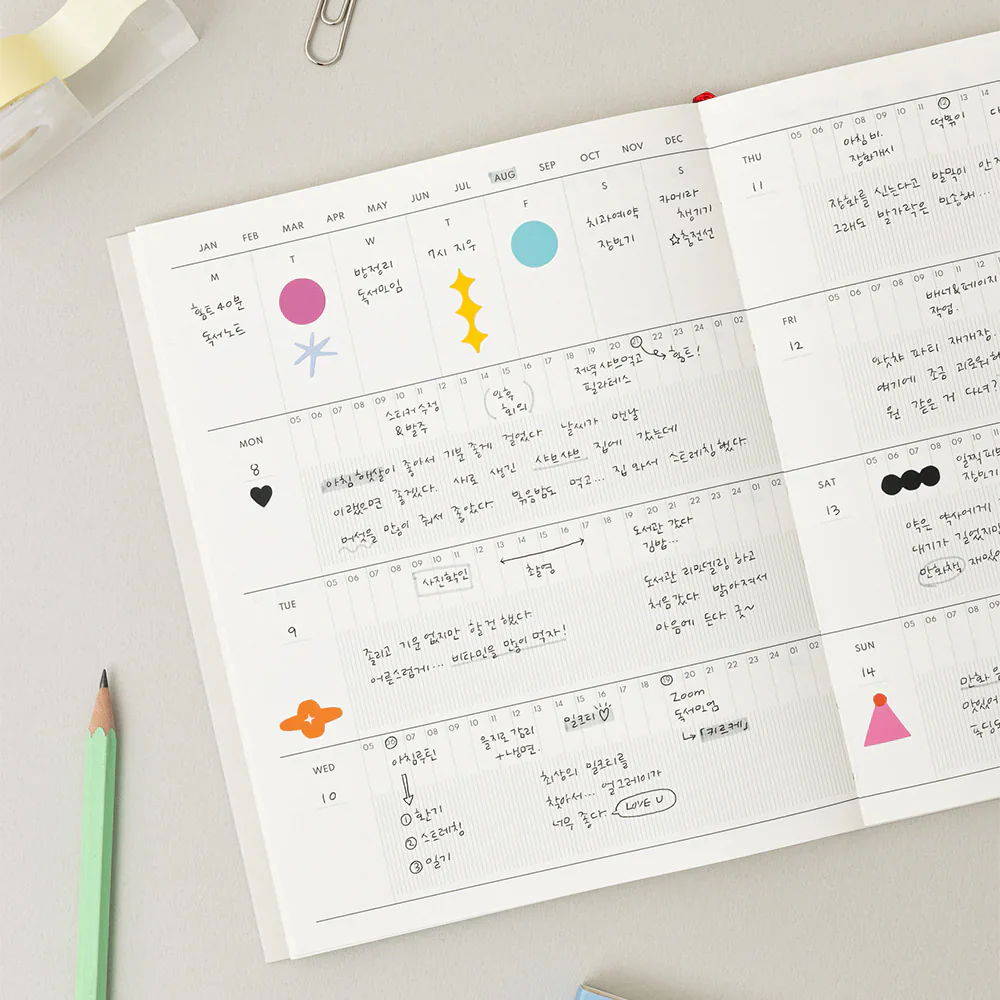 JAN FEB MAR APR MAY JUN JUL AUG SEP OCT NOV DEC
M T W T F S S
홈트 40분
독서노트
방정리
독서모임
7시 지우
치과예약
장보기
카메라
챙기기
☆충전선
05 06 07 08 09 10 11 12 13 14 15 16 17 18 19 20 21 22 23 24 01 02
MON
8
스티커 수정
& 발주
오후
회의
저녁 샤브먹고
필라테스
홈트!
아침 햇살이 좋아서 기분 좋게 걸었다 날씨가 맨날
이랬으면 좋겠다. 새로 생긴 샤브샤브 집에 갔는데
버섯을 많이 줘서 좋았다. 볶음밥도 먹고... 집 와서 스트레칭했다.
05 06 07 08 09 10 11 12 13 14 15 16 17 18 19 20 21 22 23 24 01 02
TUE
9
사진확인
촬영
도서관 갔다
김밥...
졸리고 기운 없지만 할 건 했다
어른스럽게... 비타민을 많이 먹자!
도서관 리모델링 하고
처음 갔다 밝아져서
마음에 든다. 굿~
05 06 07 08 09 10 11 12 13 14 15 16 17 18 19 20 21 22 23 24 01 02
WED
10
아침루틴
① 환기
② 스트레칭
③ 일기
을지로 감리
+냉면.
밀크티
Zoom
독서모임
↳「키르케」
최상의 밀크티를
찾아서... 얼그레이가
너무 좋다.
LOVE U
05 06 07 08 09 10 11 12 13 14
THU
11
아침 비.
장화개시
떡볶이
장화를 신는다고 발목이
그래도 발가락은
05 06 07 08 09 10 11 12
FRI
12
배너&페이지
작업.
왓챠 파티 재개장.
여기에 조금
뭔 같은 거
05 06 07 08 09 10 11
SAT
13
일찍
장보기
약은 약사에게
대기가 길었지만
만화책
05 06 07 08 09
SUN
14
만화
맛있어
푸딩도